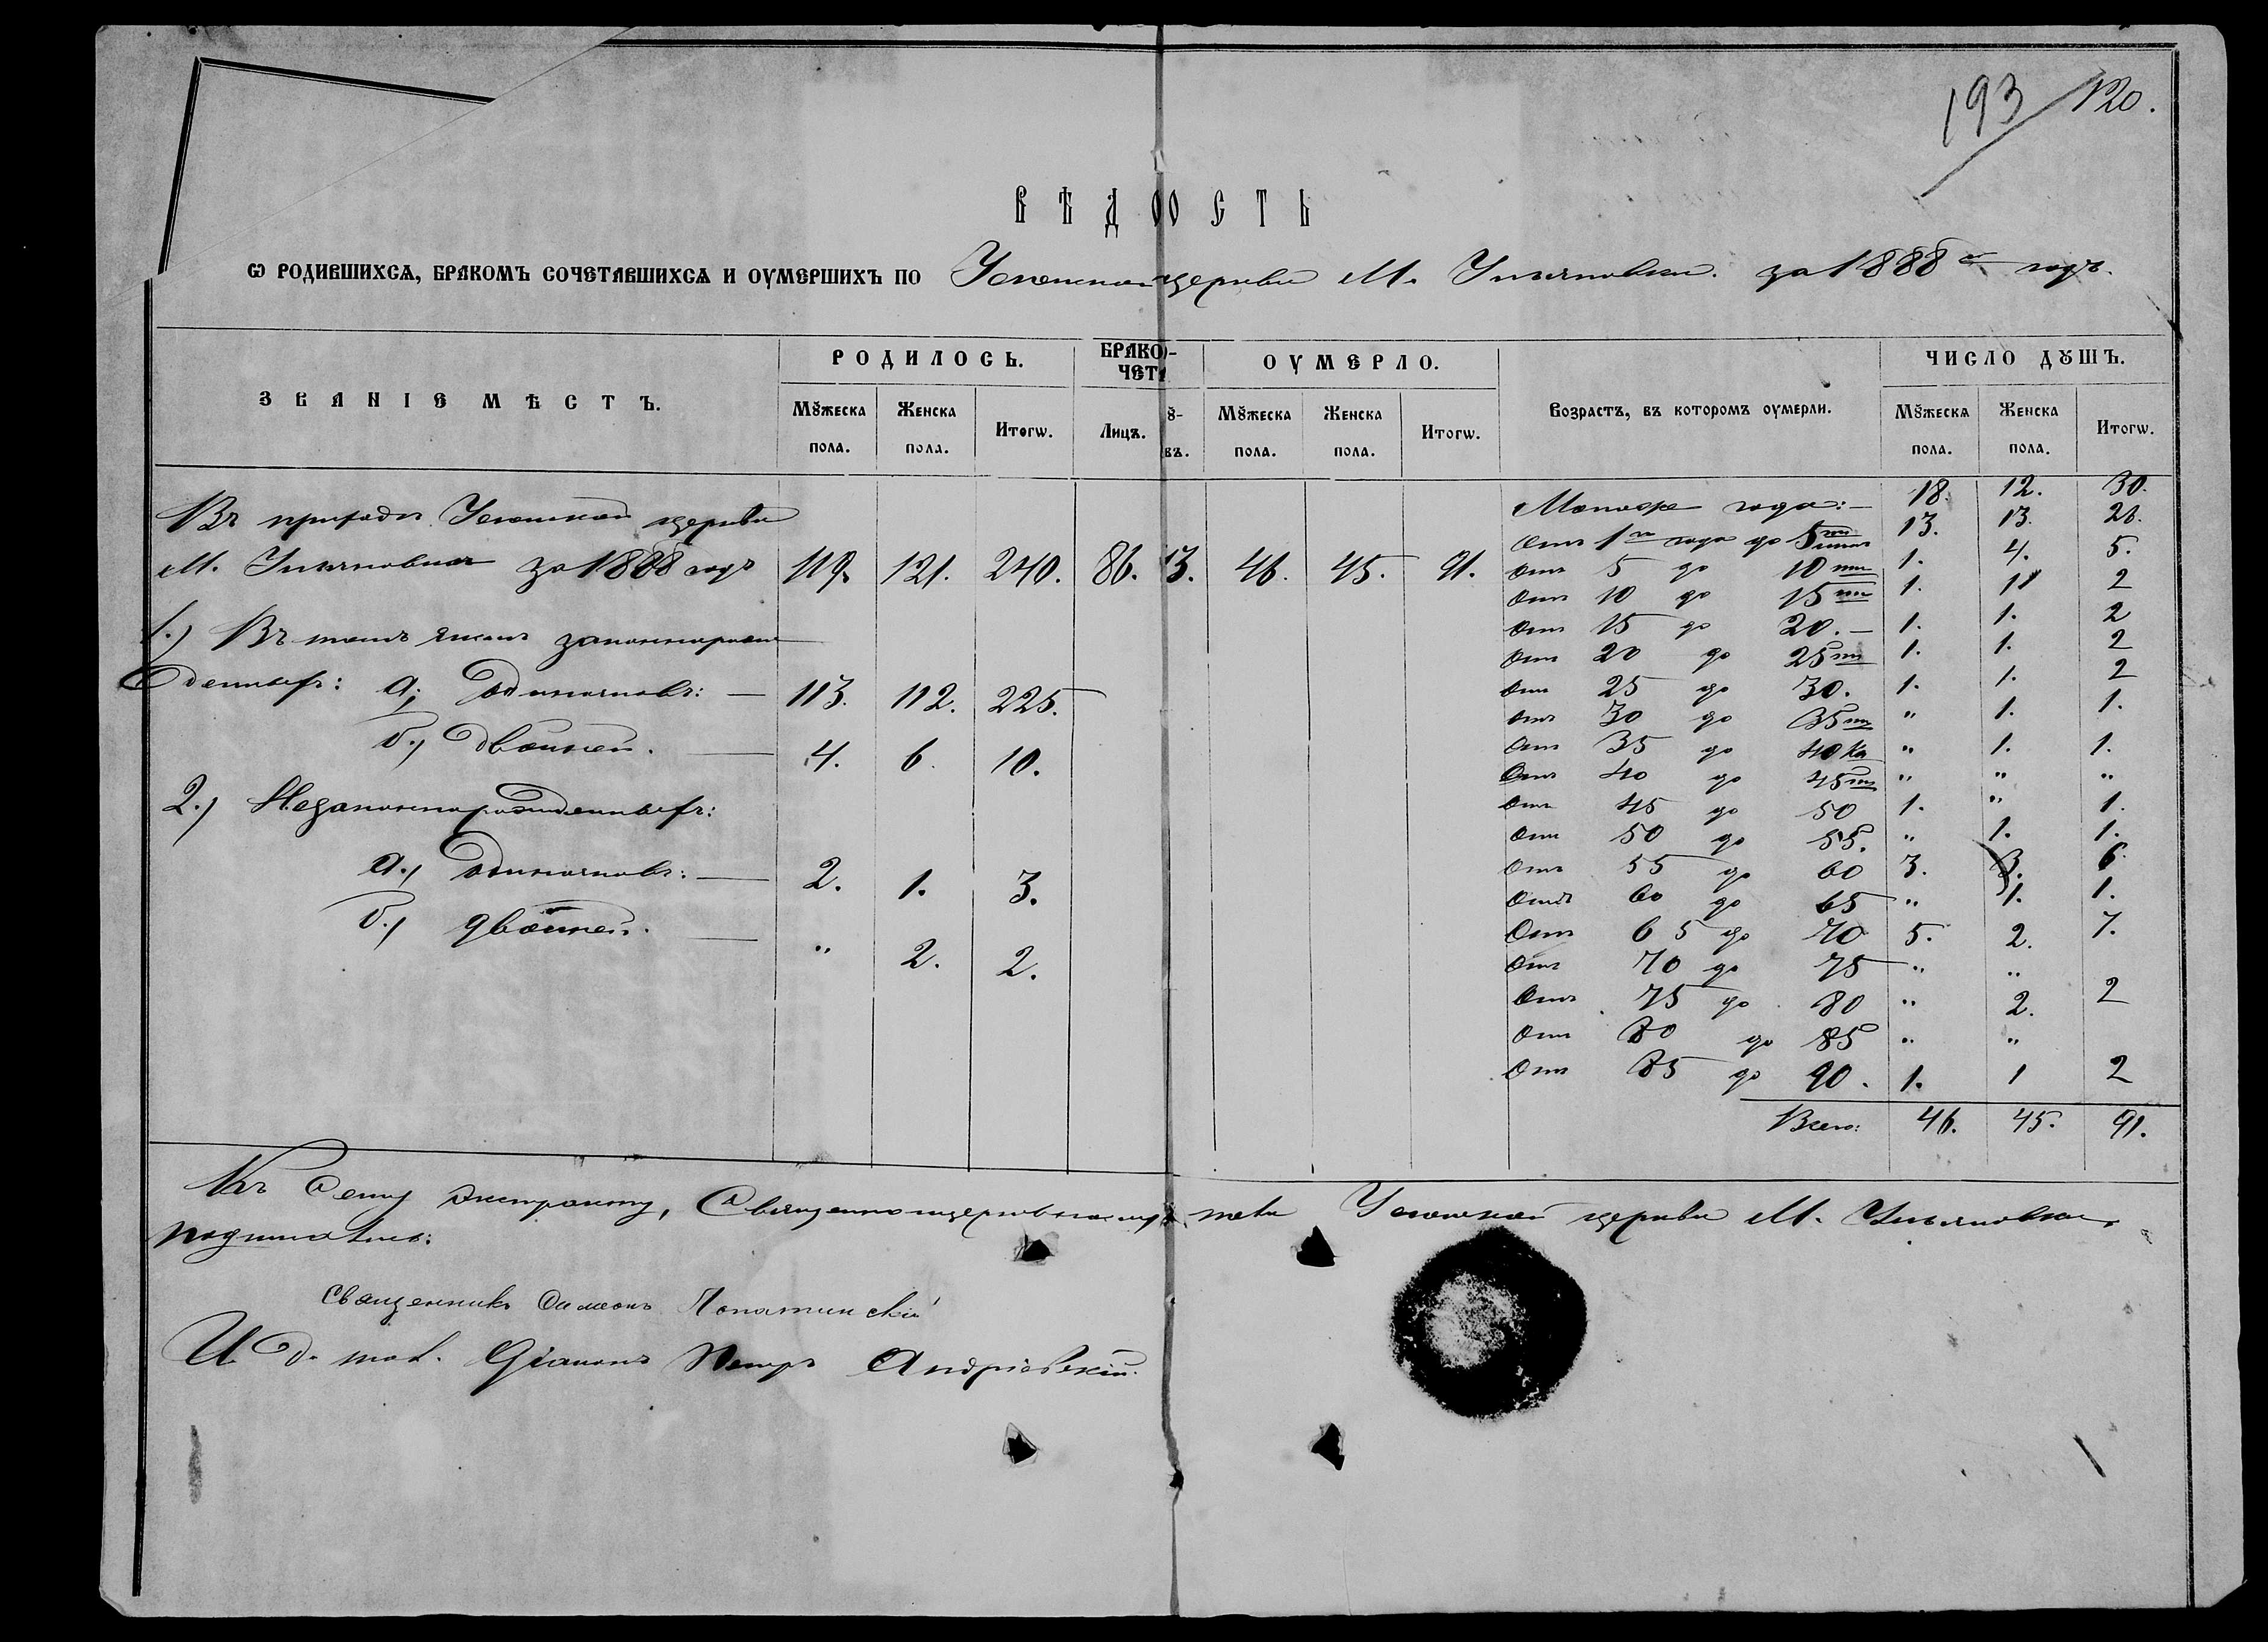 193 / 120.
ВѢДООСТЬ
Ѡ РОДИВШИХСѦ, БРАКОМЪ СОЧЕТАВШИХСѦ И ОУМЕРШИХЪ ПО церкви М. за 1888 й годъ.
ЗВАНІЕ МѢСТЪ. РОДИЛОСЬ. БРАКО- ЧЕТА ОУМЕРЛО. Возрастъ, въ которомъ оумерли. ЧИСЛО ДꙋШЪ.
Мꙋжеска пола. Женска пола. Итогѡ. Лицъ. ꙋ- въ. Мꙋжеска пола. Женска пола. Итогѡ. Мꙋжеска пола. Женска пола. Итогѡ.
Въ приходѣ церкви
М. за 1888 годъ 119. 121. 240. 86. 13. 46. 45. 91.
1.) Въ томъ числѣ законнорож
денныхъ: а, одиночковъ: — 113. 112. 225.
б., двойней. — 4. 6. 10.
2.) Незаконнорожденныхъ:
а., одиночковъ: — 2. 1. 3.
б., двойней. — " 2. 2.
Моложе года: — 18. 12. 30.
Отъ 1го года до 5ти лѣтъ 13. 13. 26.
Отъ 5 до 10ти 1. 4. 5.
Отъ 10 до 15ти 1. 1 2
Отъ 15 до 20. — 1. 1. 2
Отъ 20 до 25ти 1. 1. 2
Отъ 25 до 30. 1. 1. 2
Отъ 30 до 35ти " 1. 1.
Отъ 35 до 40ка " 1. 1.
Отъ 40 до 45ти " " "
Отъ 45 до 50 1. " 1.
Отъ 50 до 55. " 1. 1.
Отъ 55 до 60 3. 3. 6.
Отъ 60 до 65 " 1. 1.
Отъ 65 до 70 5. 2. 7.
Отъ 70 до 75 " "
Отъ 75 до 80 " 2. 2
Отъ 80 до 85 " "
Отъ 85 до 90. 1. 1 2
Всего: 46. 45. 91.
Къ сему экстракту, церкви М.
подписались:
Священникъ Симеонъ Лопатинскій
И. д. псал. Діаконъ Петръ Андріевскій.